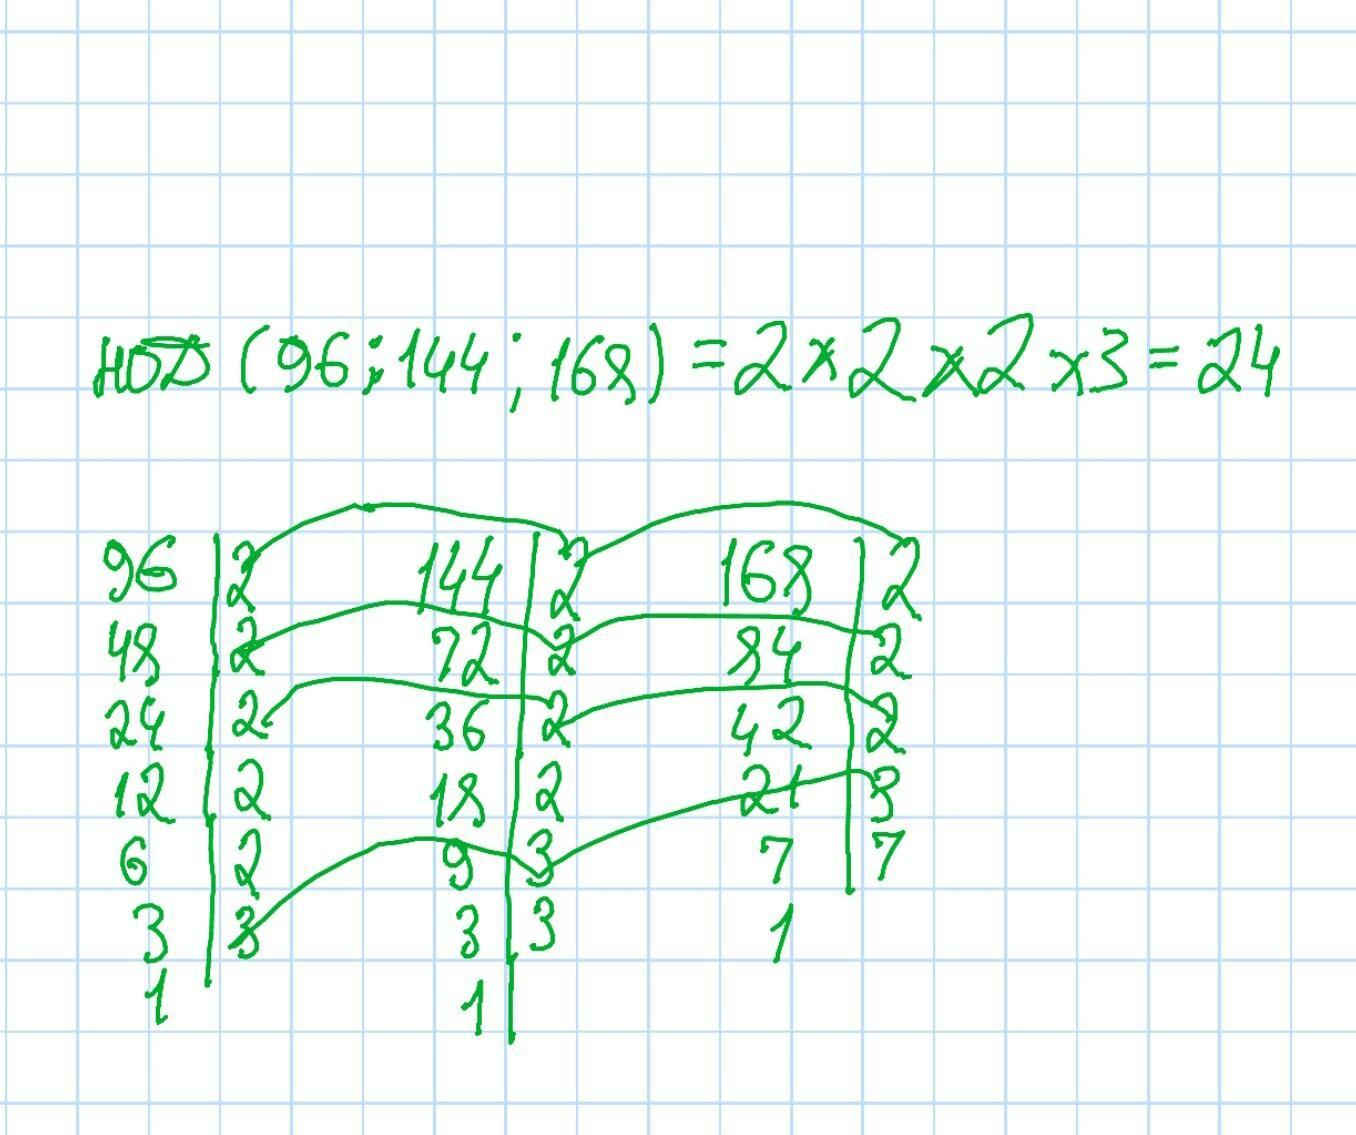 НОД (96; 144; 168) = 2 × 2 × 2 × 3 = 24
96 | 2 144 | 2 168 | 2
48 | 2 72 | 2 84 | 2
24 | 2 36 | 2 42 | 2
12 | 2 18 | 2 21 | 3
6 | 2 9 | 3 7 | 7
3 | 3 3 | 3 1
1 1